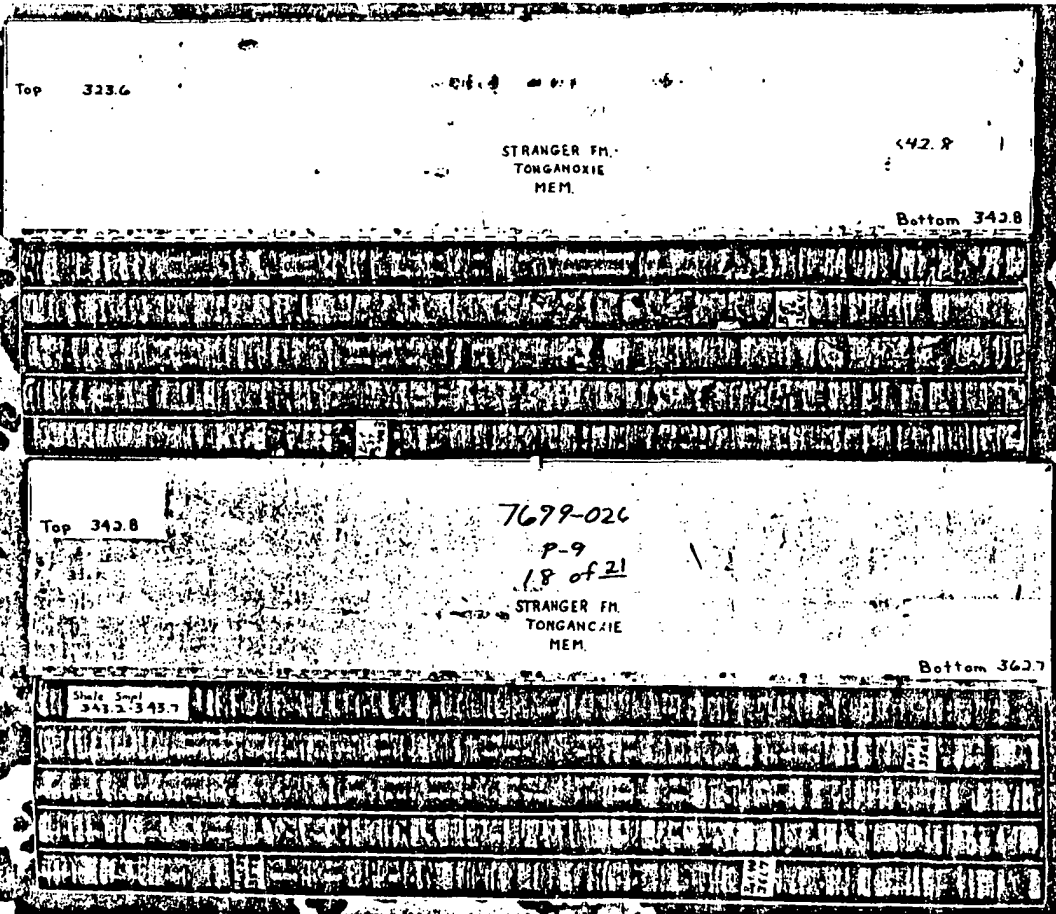 Top 323.6
STRANGER FM.
TONGANOXIE
MEM.
Bottom 342.8
Top 342.8
7699-026
P-9
18 of 21
STRANGER FM.
TONGANOXIE
MEM.
Bottom 362.7
Shale Smpl
343.2-343.7